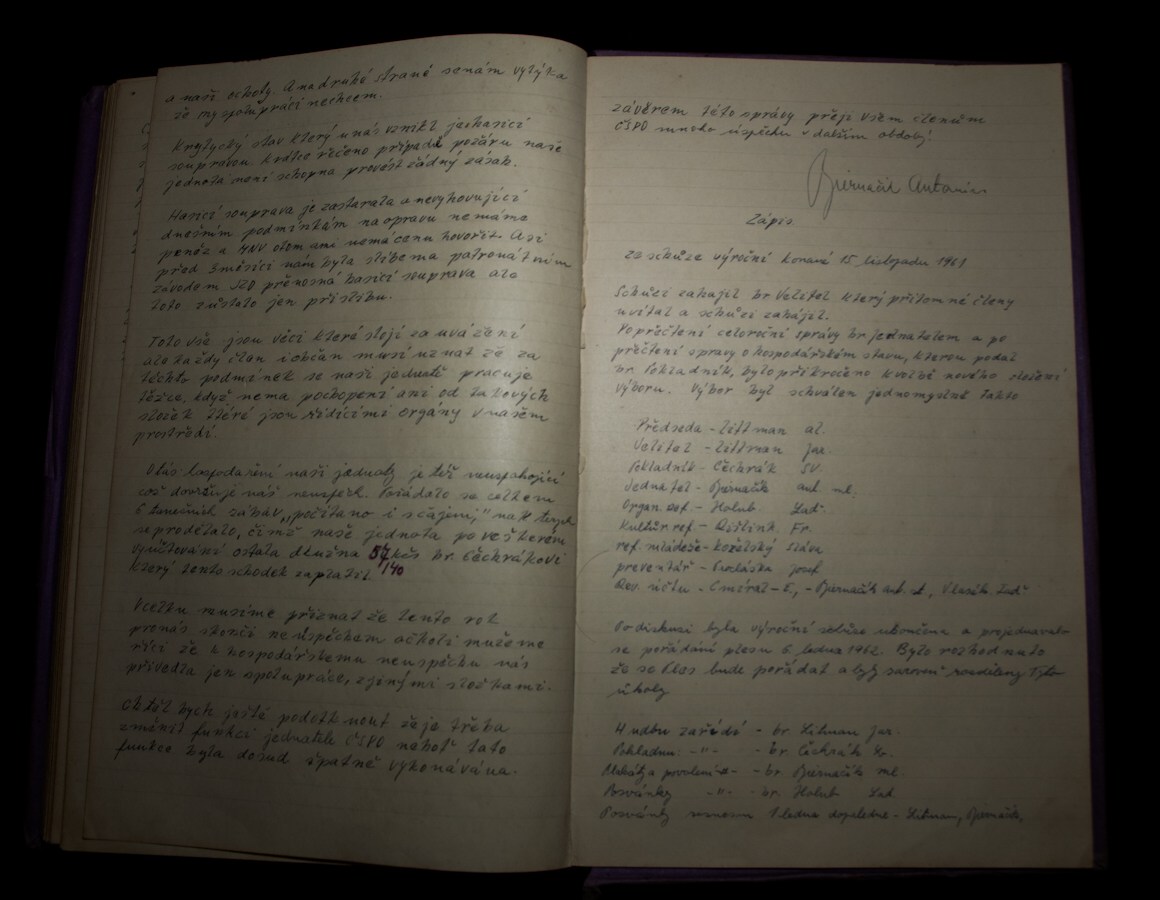 a naši ochoty. A na druhé straně se nám vytýka
že my spolupráci nechcem.
Krytycký stav který u nás vznikl je hasící
soupravou krátce řečeno případě požáru naše
jednota není schopna provést žádný zásah.
Hasicí souprava je zastaralá a nevyhovující
dnešním podmínkám na opravu nemáme
peněz a MNV o tom ani nemá cenu hovořit. Asi
před 3 měsíci nám byla slíbena patronátním
závodem přenosná hasicí souprava ale
toto zůstalo jen při slibu.
Toto vše jsou věci které stojí za uvážení
ale každý člen i občan musí uznat že za
těchto podmínek se naší jednotě pracuje
těžce, když nemá pochopení ani od takových
složek které jsou řídícími orgány v našem
prostředí.
Otás hospodaření naší jednoty je též neuspokojící
což dovršuje náš neuspěch. Pořádalo se celkem
6 tanečních zábav, "počítano i s čajem," na
se prodělalo, čímž naše jednota po veškerém
vyučtování ostala dlužna 57 kčs br. Čechrákovi
140
který tento schodek zaplatil.
Vcelku musíme přiznat že tento rok
pronás skončí neúspěchem ačkoli mužeme
říci že k hospodářskemu neuspěchu nás
přivedla jen spolupráce, z jinými složkami.
Chtěl bych ještě podotknout že je třeba
změnit funkci jednatele ČSPO neboť tato
funkce byla dosud špatně vykonávána.
závěrem této správy přeji všem členům
ČSPO mnoho úspěchu v dalším období!
Biernačik Antonin
Zápis
ze schůze výroční konané 15 listopadu 1961
Schůzi zahajil br Velitel který přítomné členy
uvítal a schůzi zahájil.
Po přečtení celoroční správy br. jednatelem a po
přečtení spravy o hospodářském stavu, kterou podal
br. Pokladník, bylo přikročeno k volbě nového složení
výboru. Výbor byl schválen jednomyslně takto
Předseda - Littman al.
Velitel - Littman jar.
Pokladník - Čechrák Sv.
Jednatel - Biernačik ant. ml.
Organ. ref. - Holub Lad.
Kultur. ref. - Fr.
ref. mládeže - Koželský Sláva
preventář - Josef
Rev. účtu - Cmíral - E, - Biernačik ant. st., Vlasák Lad.
Po diskuzi byla výroční schůze ukončena a projednavalo
se pořádání plesu 6 ledna 1962. Bylo rozhodnuto
že se ples bude pořádat a byly rozděleny Tyto
úkoly
Hudbu zařídí - br. Litman Jar.
Pokladnu -"- - br. Čechrák Sv.
Plakáty a povolení -"- - br. Biernačik ml.
Pozvánky -"- - br. Holub Lad.
Pozvánky 1 ledna dopoledne - Litman, Biernačik,